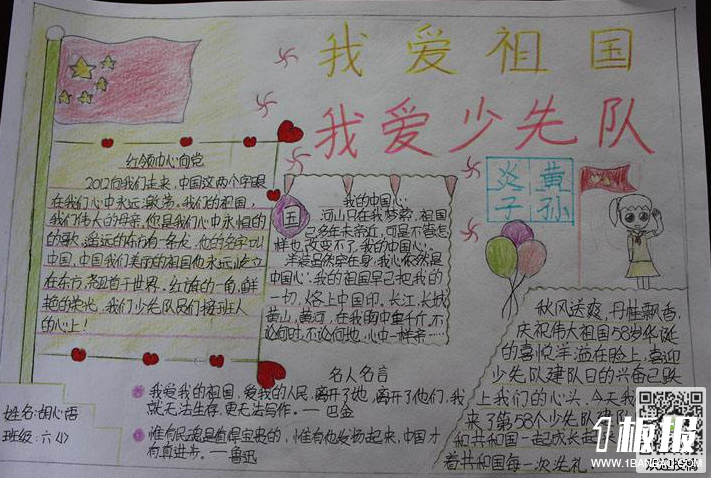 我爱祖国
我爱少先队
红领巾心向党
2012向我们走来,中国这两个字眼
在我们心中永远敬爱。我们的祖国,
我们伟大的母亲。您是我们心中永恒的
的歌。遥远的东方有一条龙,他的名字叫
中国,中国我们美丽的祖国他永远屹立
在东方,翘首于世界。红旗的一角,鲜
艳的荣光,我们少先队员们接班人
的心上!
国
我的中国心
河山只在我梦萦,祖国
已多年未亲近,可是不管怎
样也改变不了,我的中国心。
半装虽然穿在身,我心依然是
中国心。我的祖国早已把我的
一切,烙上中国印,长江,长城
黄山,黄河,在我胸中重千斤,不
论何时,不论何地,心中一样亲……
炎 黄
子 孙
秋风送爽,丹桂飘香,
庆祝伟大祖国58岁华诞
的喜悦洋溢在脸上,喜迎
少先队建队日的兴奋已跃
上我们的心头,今天我
来了第58个少先队建队
和共和国一起成长起
着共和国每一次洗礼!
名人名言
我爱我的祖国,爱我的人民,离开了她,离开了他们,我
就无法生存,更无法写作。——巴金
惟有民魂是值得宝贵的,惟有他发扬起来,中国才
有真进步。——鲁迅
姓名:胡心语
班级:六(1)
1板报
WWW.1BANBAO.COM
欢迎投稿